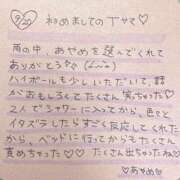 9/20 初めましてのTサマ♡
雨の中、あやめを選んでくれて
ありがとう
ハイボールも少しいただいて、話
がおもしろしてたくさん笑ちゃった♡
2人でシャワーに入ってから、色々と
イタズラしたらすぐ反応してくれた
から、ベッドに行ってからもたくさん
責めちゃった♡♡たくさん出ちゃったね♡
♡あやめ♡